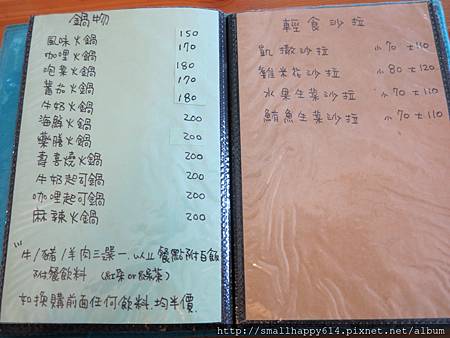 鍋物
風味火鍋 150
咖哩火鍋 170
泡菜火鍋 180
蕃茄火鍋 170
牛奶火鍋 180
海鮮火鍋 200
藥膳火鍋 200
壽喜燒火鍋 200
牛奶起司鍋 200
咖哩起司鍋 200
麻辣火鍋 200
牛/豬/羊肉三選一.以上餐點附白飯
附餐飲料 (紅茶or綠茶)
如換購前面任何飲料.均半價.
輕食沙拉
凱撒沙拉 小70 大110
雞米花沙拉 小80 大120
水果生菜沙拉 小70 大110
鮪魚生菜沙拉 小70 大110
http://smallhappy614.pixnet.net/album